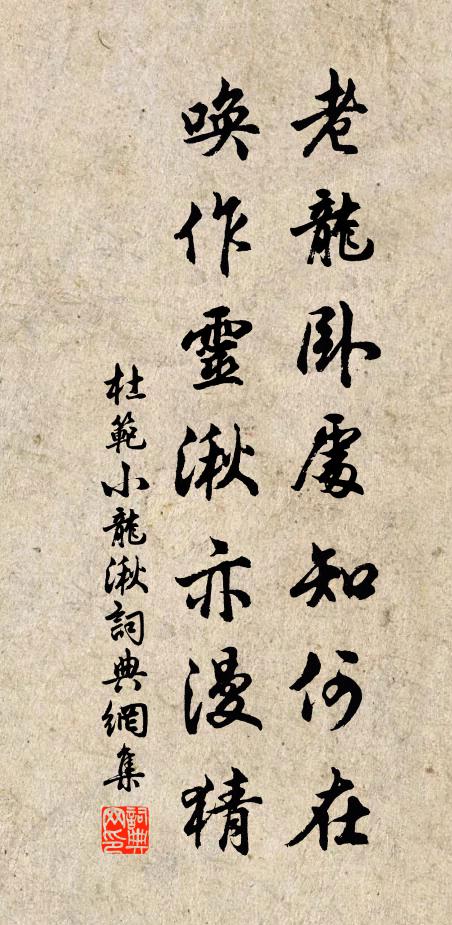 老龍卧處知何在
喚作靈湫亦漫猜
杜範小龍湫詞典網集
詞典網印